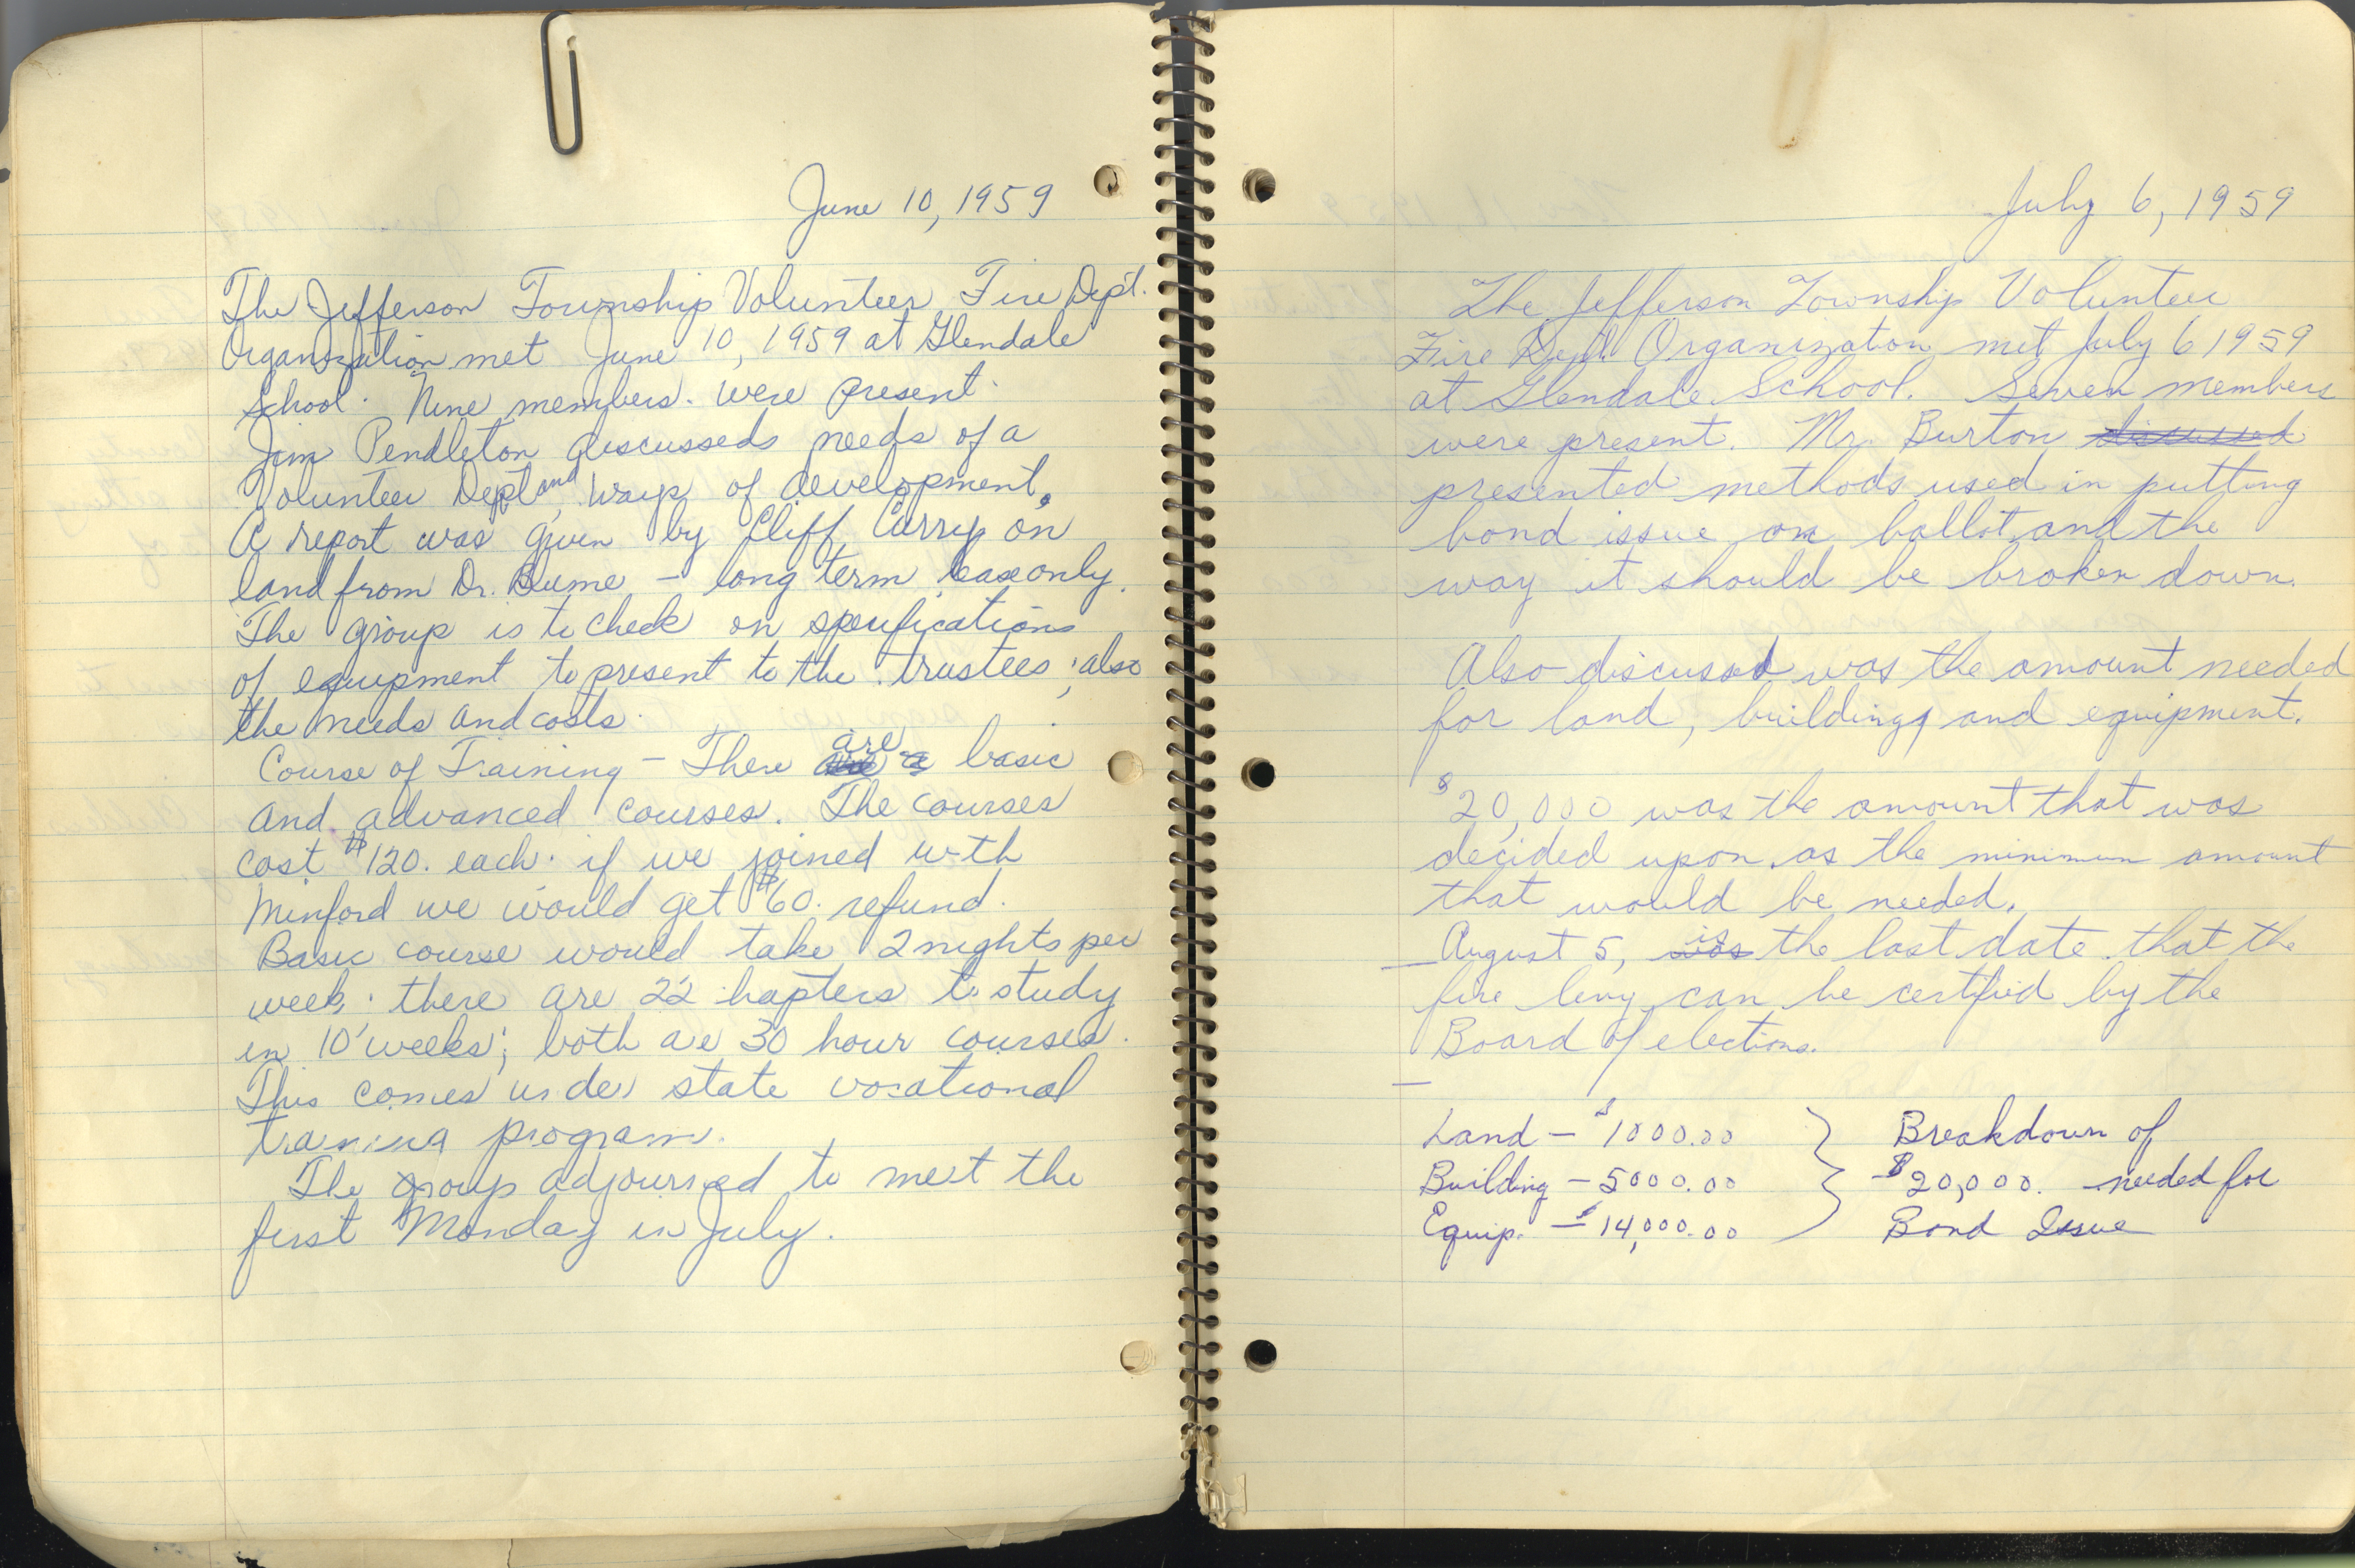 June 10, 1959
The Jefferson Township Volunteer Fire Dept.
Organization met June 10, 1959 at Glendale
School. Nine members. were present.
Jim Pendleton discusseds needs of a
Volunteer Dept and, ways of development.
A report was given by Cliff Curry on
land from Dr. - long term lease only.
The group is to check on specifications
of equipment to present to the trustees; also
the needs and costs.
Course of Training - There are basic
and advanced courses. The courses
cost $120. each. if we joined with
Minford we would get $60. refund.
Basic course would take 2 nights per
week. there are 22 hapters to study
in 10 weeks; both are 30 hour courses.
This comes under state vocational
training program.
The group adjourned to meet the
first Monday in July.
July 6, 1959
The Jefferson Township Volunteer
Fire Dept. Organization met July 6 1959
at Glendale School. Seven members
were present. Mr. Burton discussed
presented methods used in putting
bond issue on ballot and the
way it should be broken down.
Also discussed was the amount needed
for land, building, and equipment.
$20,000 was the amount that was
decided upon as the minimum amount
that would be needed.
August 5, was is the last date that the
fire levy can be certified by the
Board of elections.
Land - $1000.00 } Breakdown of
Building - 5000.00 } $20,000. needed for
Equip. - $14,000.00 Bond Issue